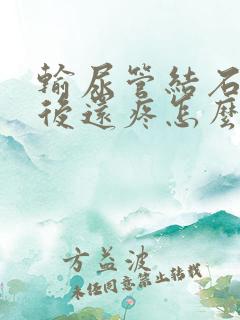 輸尿管結石
後還疼怎麼
方益波
未經同意禁止轉載